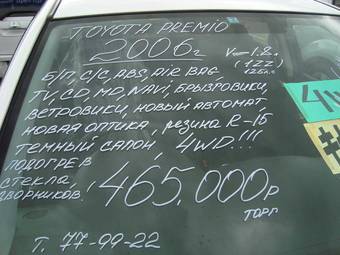 TOYOTA PREMIO
2006г V-1.8л
(1ZZ)
Б/П, С/С, ABS, AIR BAG, 125л.с
TV, CD, MD, NAVI, БРЫЗГОВИКИ,
ВЕТРОВИКИ, НОВЫЙ АВТОМАТ
НОВАЯ ОПТИКА, резина R-15
ТЕМНЫЙ САЛОН, 4WD!!!
ПОДОГРЕВ
СТЕКЛА,
ДВОРНИКОВ, 465.000р
ТОРГ
Т. 77-99-22
4W